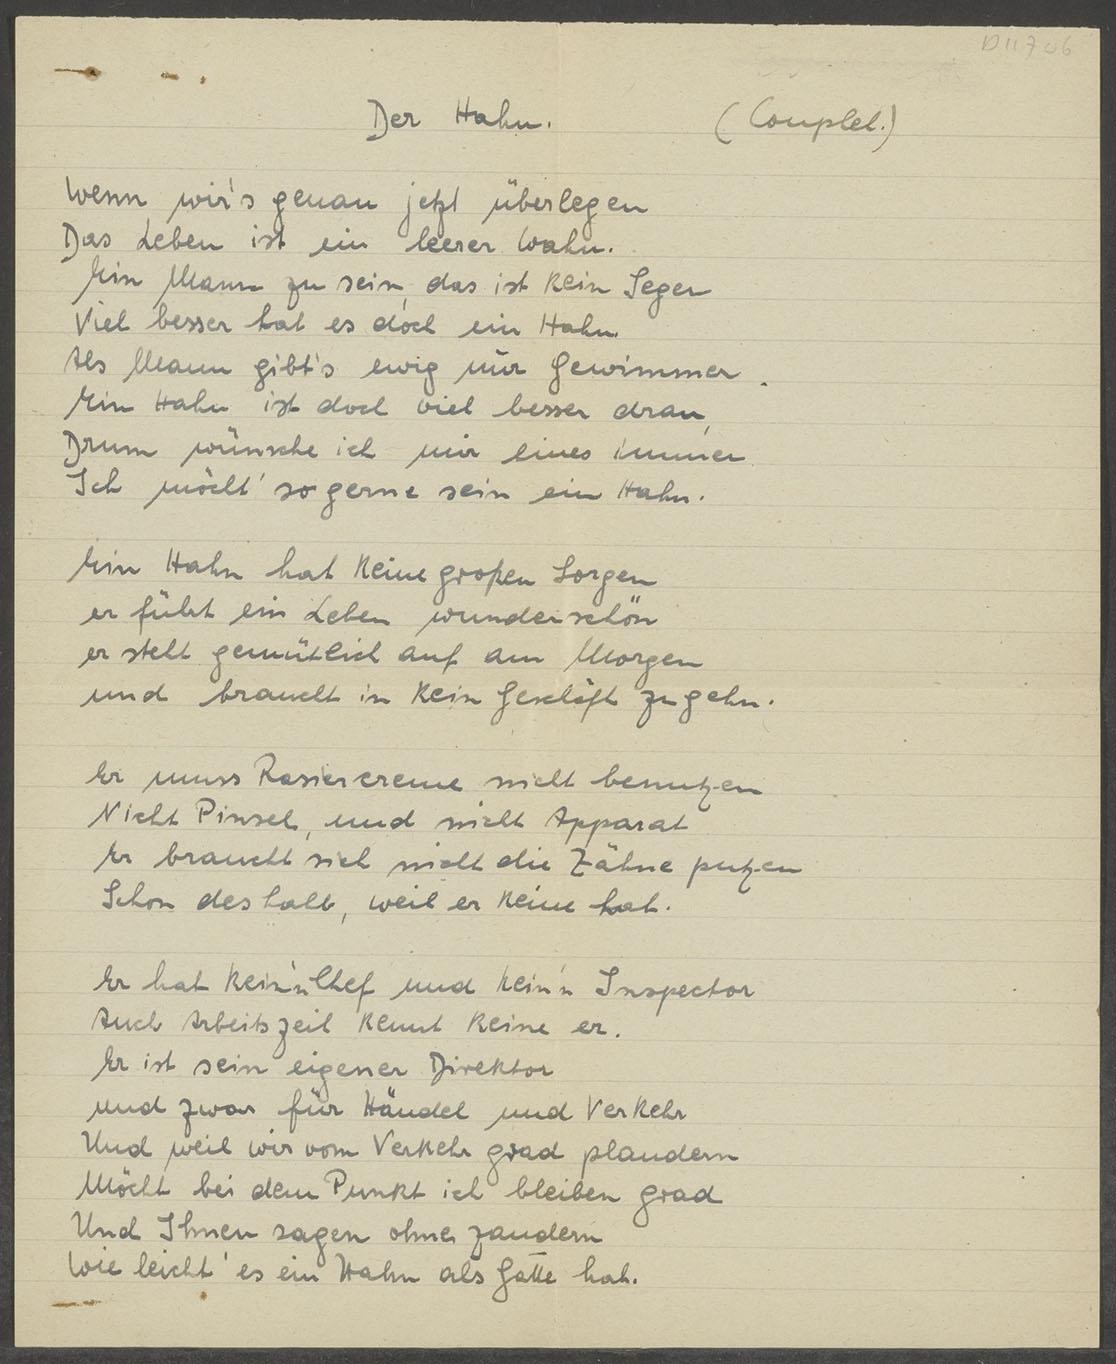 D11706
Der Hahn. (Couplet.)
Wenn wir's genau jetzt überlegen
Das Leben ist ein leerer Wahn.
Ein Mann zu sein, das ist kein Segen
Viel besser hat es doch ein Hahn.
Als Mann gibt's ewig nur Gewimmer.
Ein Hahn ist doch viel besser dran,
Drum wünsche ich mir eines immer
Ich möcht' so gerne sein ein Hahn.
Ein Hahn hat keine großen Sorgen
er führt ein Leben wunderschön
er steht gemütlich auf am Morgen
und braucht in kein Geschäft zu gehn.
Er muss Rasiercreme nicht benutzen
Nicht Pinsel, und nicht Apparat
Er braucht sich nicht die Zähne putzen
Schon deshalb, weil er keine hat.
Er hat kein'n Chef und kein'n Inspector
Auch Arbeitszeit kennt keine er.
Er ist sein eigener Direktor
und zwar für Händel und Verkehr
Und weil wir vom Verkehr grad plaudern
Möcht bei dem Punkt ich bleiben grad
Und Ihnen sagen ohne zaudern
Wie leicht' es ein Hahn als Gatte hat.